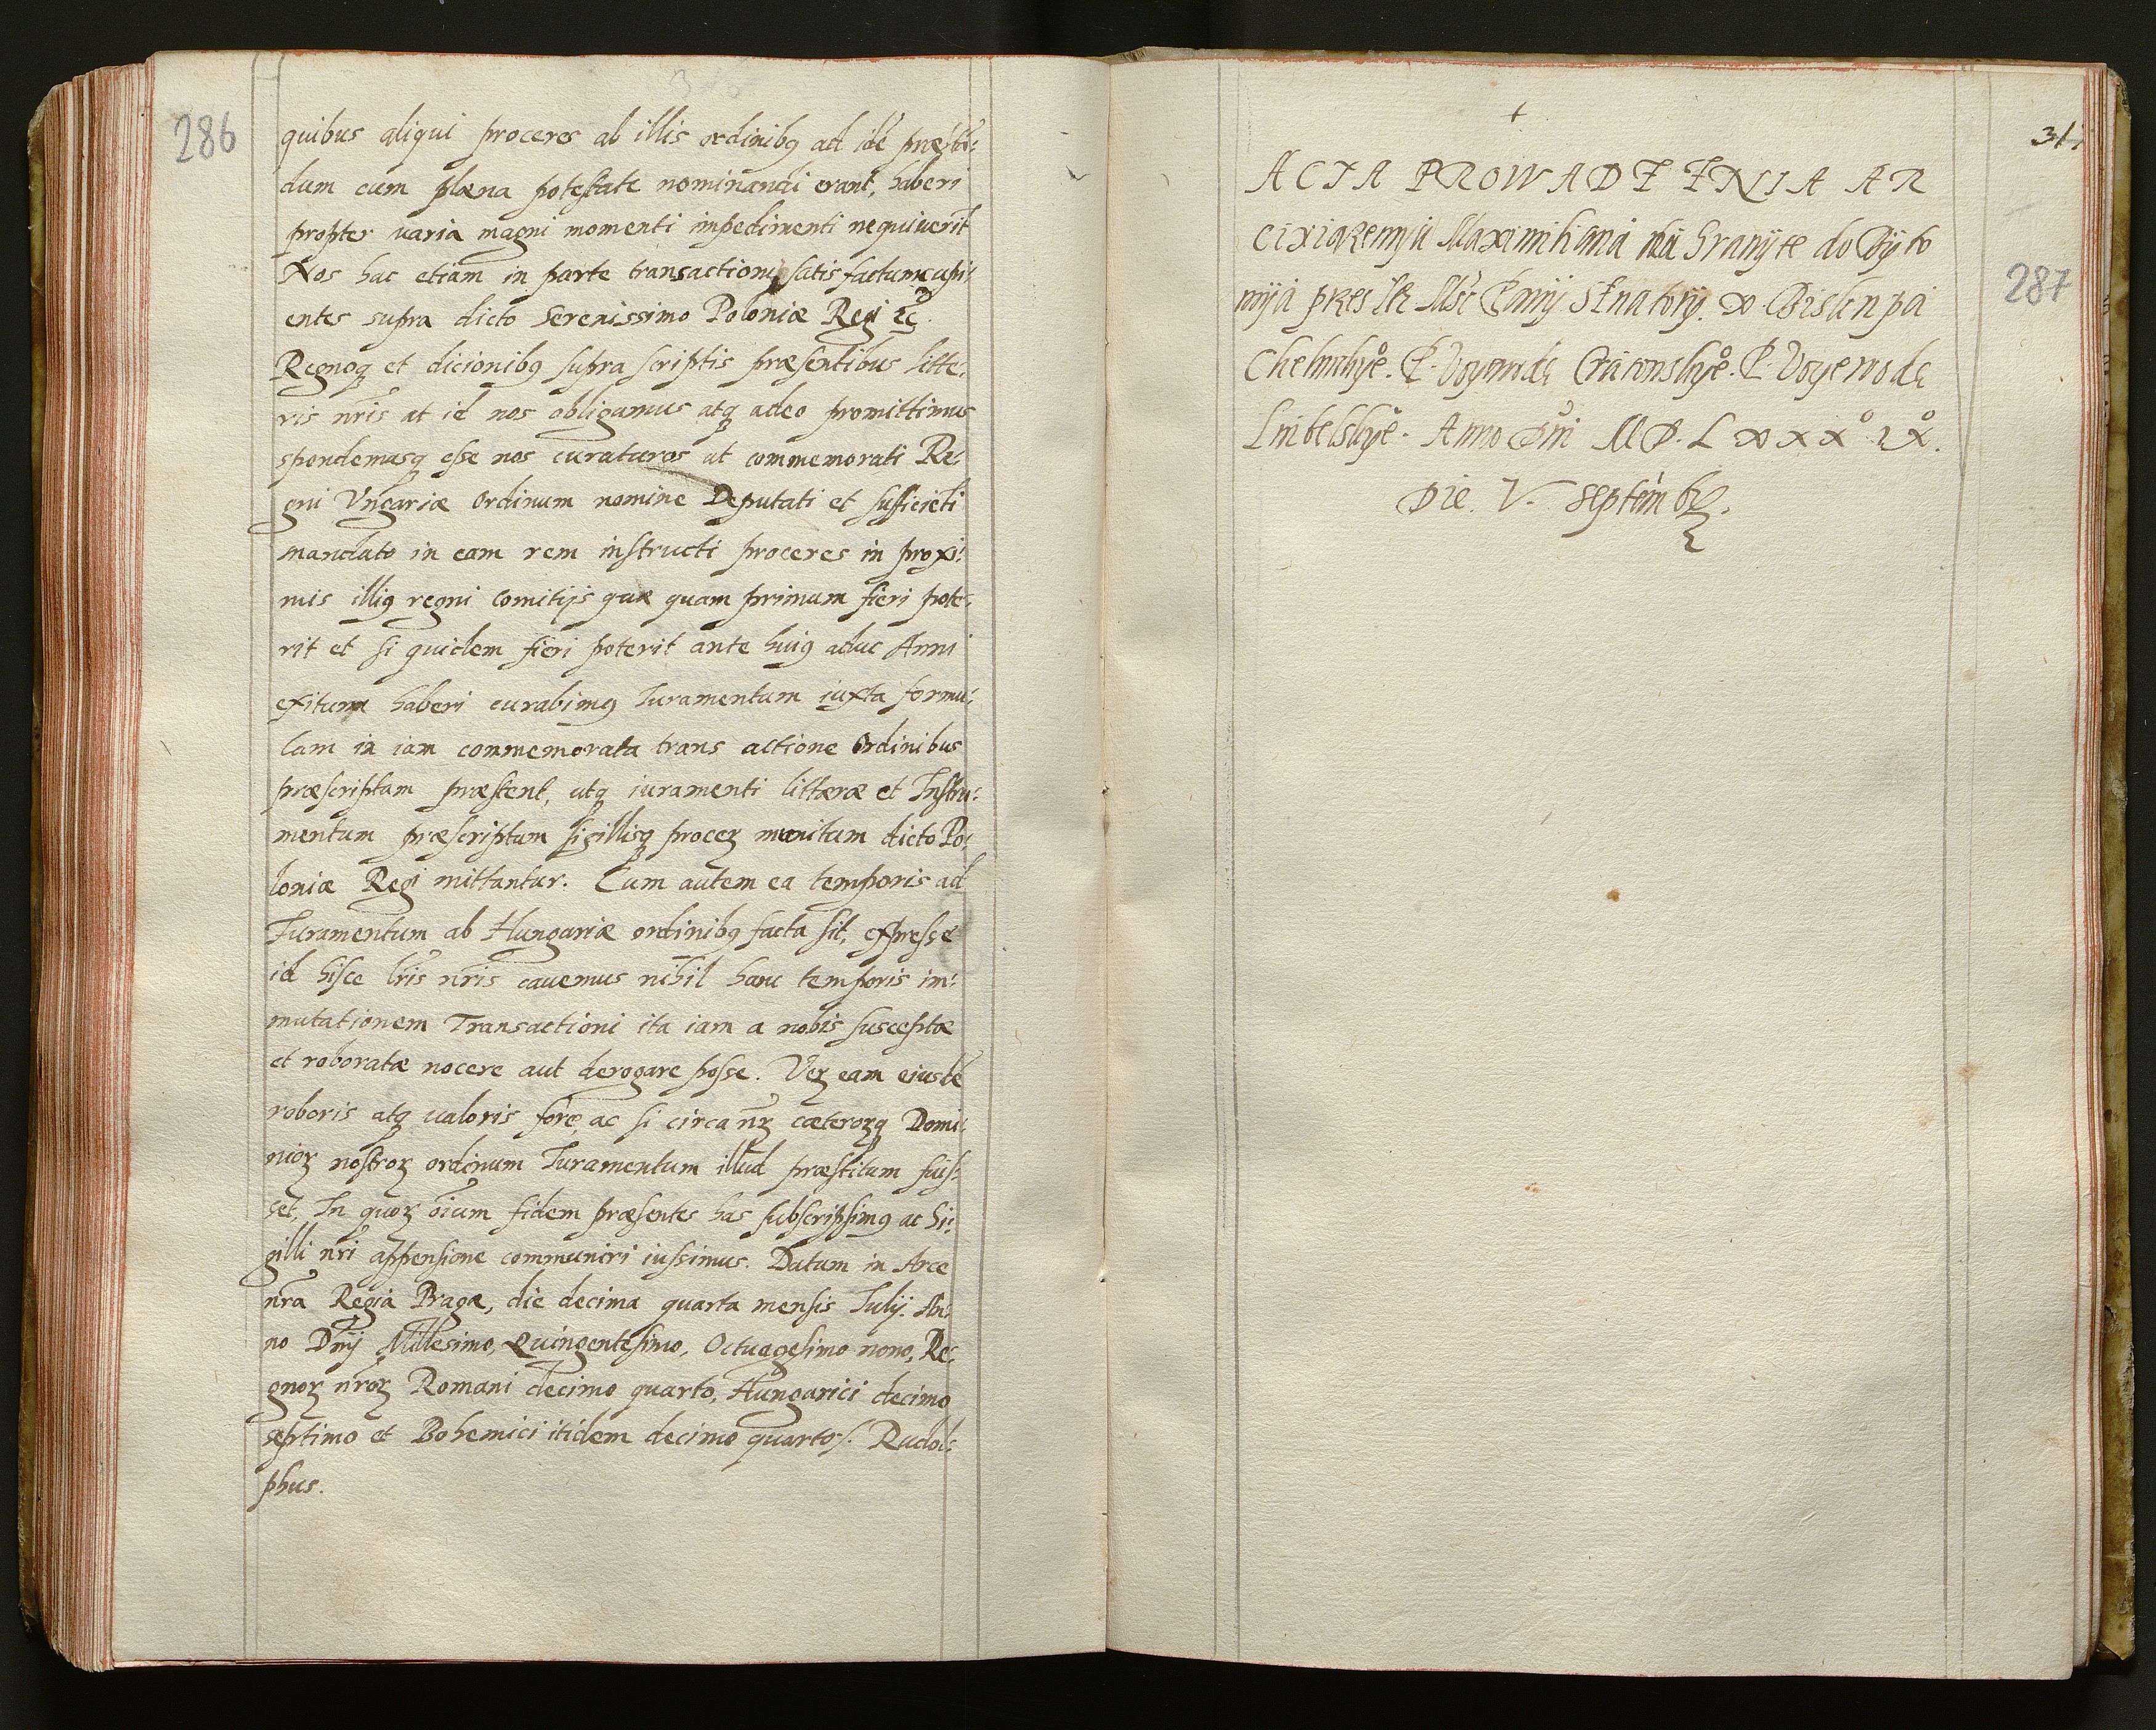 286
quibus aliqui proceres ab illis ordinibꝫ ad idē præstā:
dum cum plæna potestate nominandi erant, haberi
propter varia magni momenti impedimenti nequiverit
Nos hac etiam in parte transactioni satis factum cupi:
entes supra dicto Serenissimo Poloniæ Regi etc.
Regnoqꝫ et dicionibꝫ supra scriptis præsentibus litte:
ris nr̄is at id nos obligamus atqꝫ adeo promittimus
spondemusqꝫ esse nos curaturos ut commemorati Re:
gni Vngariæ Ordinum nomine Deputati et sufficiēti
mandato in eam rem instructi proceres in proxi:
mis illiꝰ regni Comitijs quæ quam primum fieri pote:
rit et si quidem fieri poterit ante huiꝰ aduc Anni
exitum haberi curabimꝰ Iuramentum iuxta formu:
lam in iam commemorata trans actione Ordinibus
præscriptam præstent, utqꝫ iuramenti litteræ et Instru:
mentum præscriptum sigillisqꝫ proceꝝ munitum dicto Po:
loniæ Regi mittantur. Cum autem ea temporis ad
Iuramentum ab Hungariæ ordinibꝰ facta sit, expresse
id hisce lr̄is nr̄is cavemus nihil hanc temporis im:
mutationem Transactioni ita iam a nobis susceptæ
et roboratæ nocere aut derogare posse. Veꝝ eam eiusdē
roboris atqꝫ valoris fore, ac si circa nr̄ꝝ cæteroꝝqꝫ Domi:
nioꝝ nostroꝝ ordinum Iuramentum illud præstitum fuis:
set, In quoꝝ oīum fidem præsentes has subscripsimꝰ ac Si:
gilli nr̄i appensione communiri iussimus. Datum in Arce
nr̄a Regia Pragæ, die decima quarta mensis Iulij. An:
no Dn̄ij Millesimo, Quingentesimo, Octuagesimo nono, Re:
gnoꝝ nr̄oꝝ Romani decimo quarto, Hungarici decimo
septimo et Bohemici itidem decimo quarto. Rudol:
phus.
+
31
ACTA PROWADZENIA AR
cixiążennja Maximiliana na Granyte do Byto
mija przes Ich Msc Pany Senatory. X. Biskupa
Chelmskye. P. Voyewodę Cracowskye. P. Voyewodę
Lubelskye. Anno Dn̄i MD. LXXX° IX.
Die. V. Septembꝝ.
287